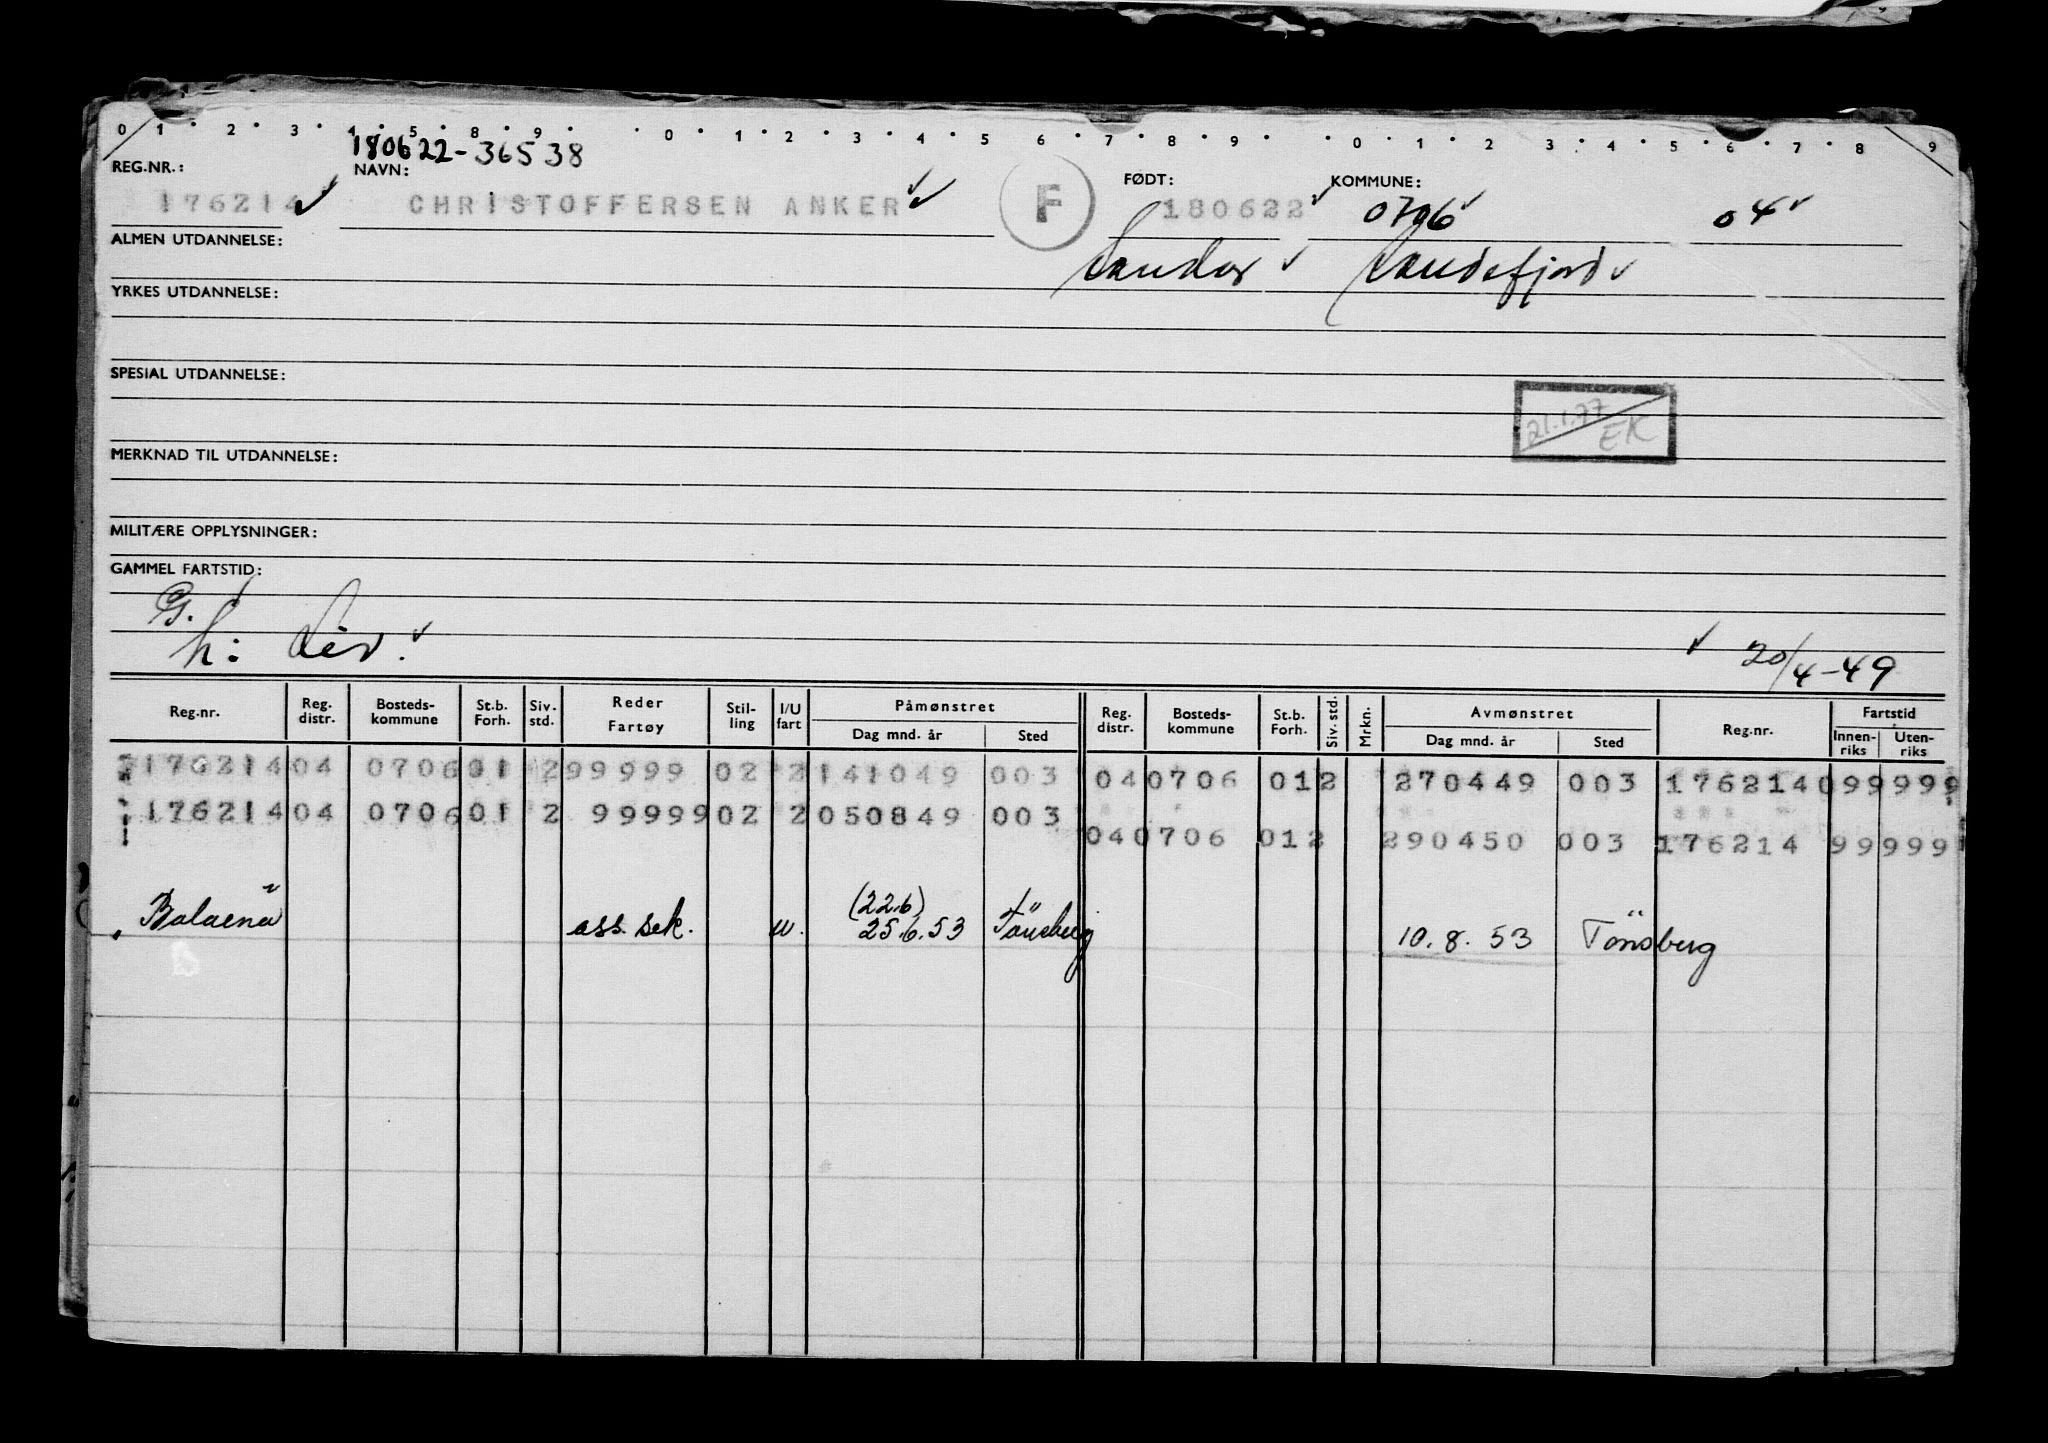 0 1 2 3 4 5 8 9 0 1 2 3 4 5 6 7 8 9 0 1 2 3 4 5 6 7 8 9
180622-36538
REG.NR.: NAVN: FØDT: KOMMUNE:
176214 CHRISTOFFERSEN ANKER F 180622 0706 04
ALMEN UTDANNELSE: Sandar Sandefjord
YRKES UTDANNELSE:
SPESIAL UTDANNELSE:
21.1.77 EK
MERKNAD TIL UTDANNELSE:
MILITÆRE OPPLYSNINGER:
GAMMEL FARTSTID:
G.
h: Liv. 20/4-49
Reg.nr. Reg. distr. Bosteds-kommune St.b. Forh. Siv. std. Reder Fartøy Stil-ling I/U fart Påmønstret Dag mnd. år Sted Reg. distr. Bosteds-kommune St.b. Forh. Siv. std. Mrkn. Avmønstret Dag mnd. år Sted Reg.nr. Fartstid Innen-riks Uten-riks
176214 04 0706 01 2 99999 02 2 141049 003 04 0706 01 2 270449 003 176214 099999
176214 04 0706 01 2 99999 02 2 050849 003
04 0706 01 2 290450 003 176214 99999
Balaena ass. sek. u. (22.6) 25.6.53 Tönsberg 10.8.53 Tönsberg